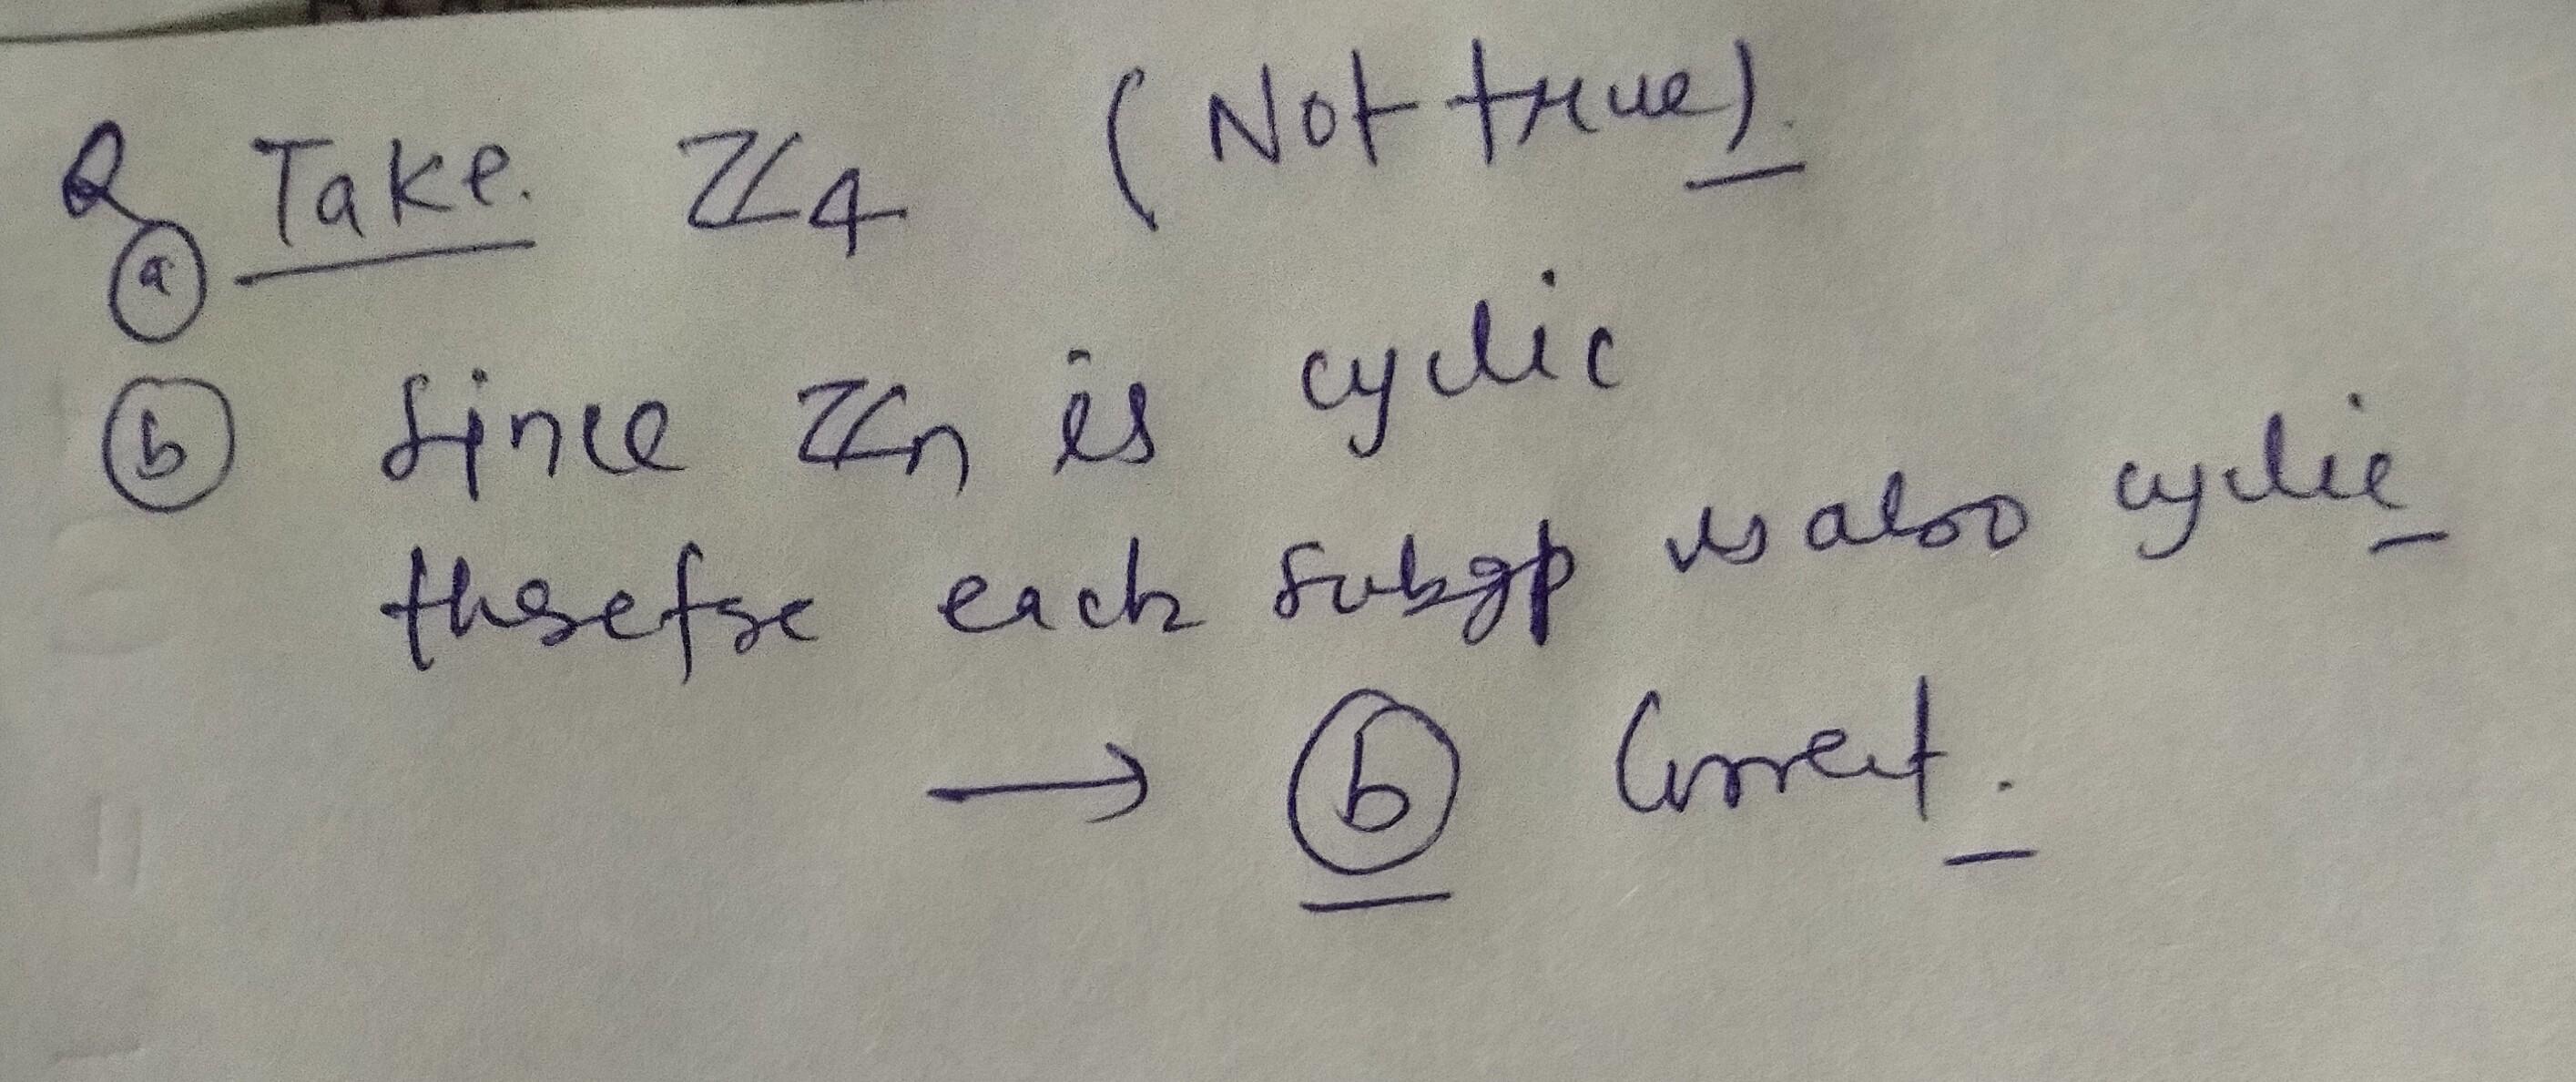 Q Take. ℤ4 (Not true).
(a)
(b) Since ℤn is cyclic
therefore each subgp is also cyclic
→ (b) Correct.